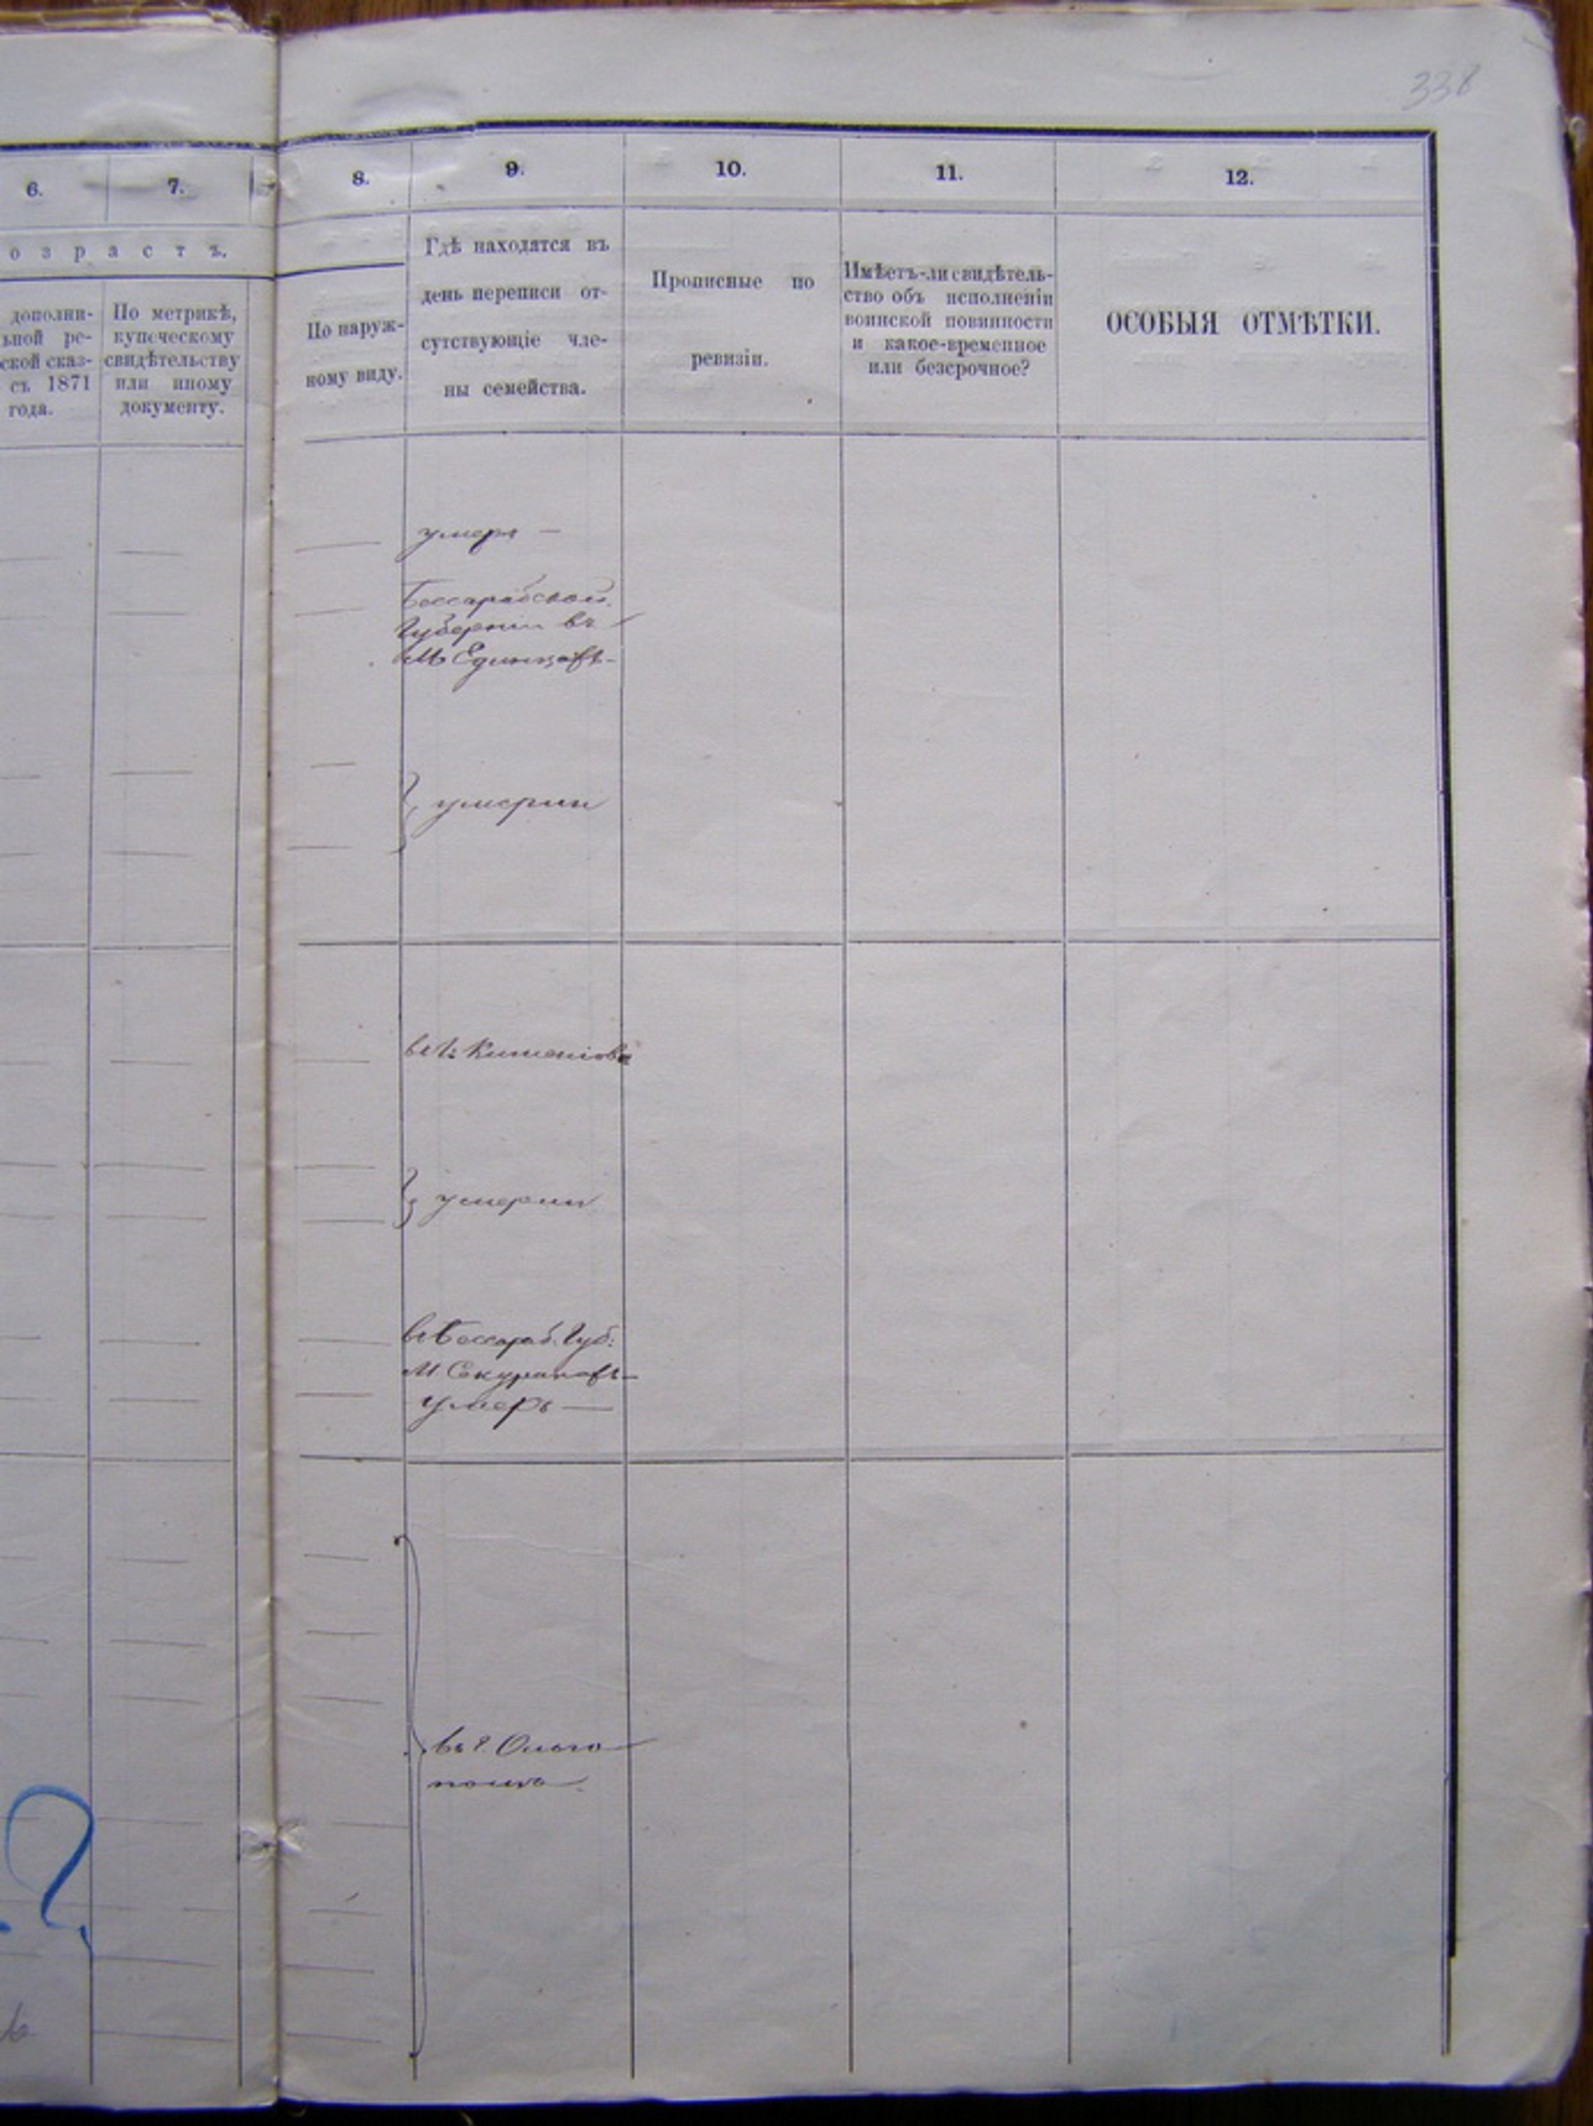 338
6. 7. 8. 9. 10. 11. 12.
о з р а с т ъ.
дополни-
ьной ре-
ской сказ-
съ 1871
года.
По метрикѣ,
купеческому
свидѣтельству
или иному
документу.
По наруж-
ному виду.
Гдѣ находятся въ
день переписи от-
сутствующіе чле-
ны семейства.
Прописные по
ревизіи.
Имѣетъ-ли свидѣтель-
ство объ исполненіи
воинской повинности
и какое-временное
или безсрочное?
ОСОБЫЯ ОТМѢТКИ.
умеръ —
Бессарабской
Губерніи въ
М Единцахъ-
умерли
въ г: Кишеневѣ
умерли
въ Бессараб. Губ:
М Секуранахъ-
умеръ —
въ г. Ольго
полѣ